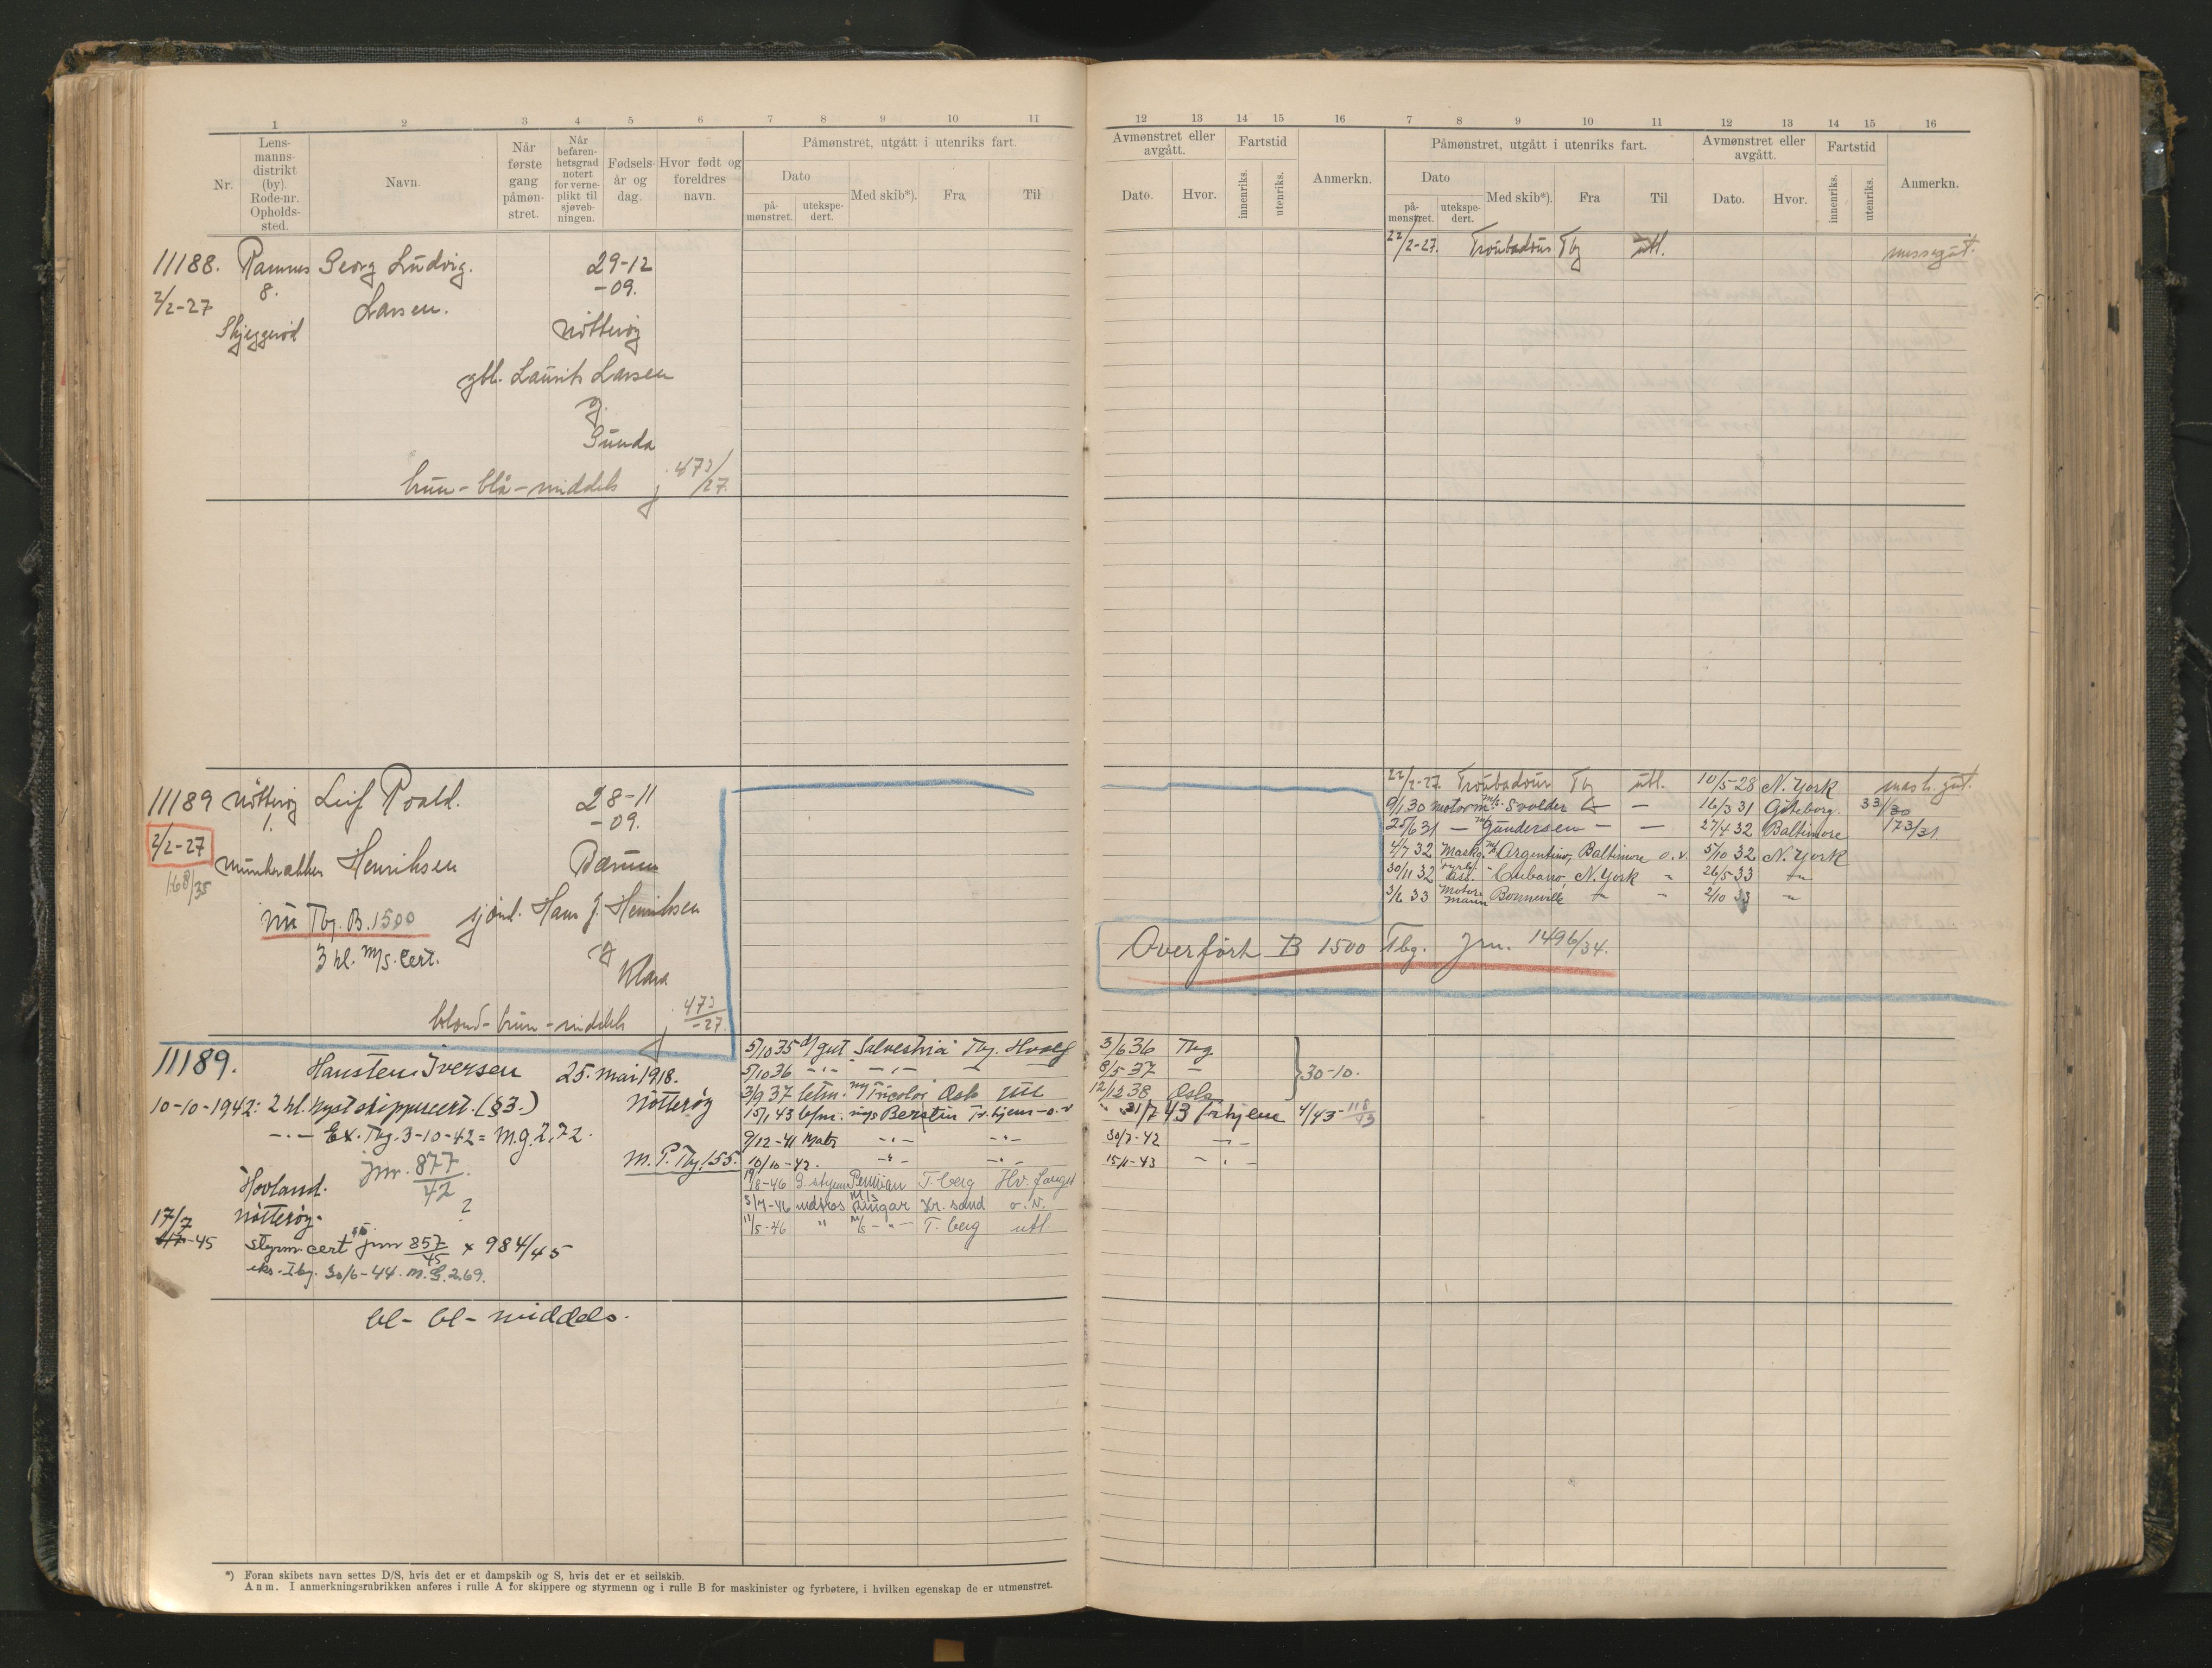 1 2 3 4 5 6 7 8 9 10 11
Nr. Lensmannsdistrikt (by). Rode-nr. Opholdssted. Navn. Når første gang påmønstret. Når befarenhetsgrad notert for verneplikt til sjøvebningen. Fødselsår og dag. Hvor født og foreldres navn. Påmønstret, utgått i utenriks fart.
Dato
påmønstret. utekspedert. Med skib*). Fra Til
11188. Ramnes Georg Ludvig. 29-12
8. -09.
2/2-27 Larsen.
Skjeggerød Nøtterøy
gbl. Laurits Larsen
og
Gunda
brun - blå - middels j 473/27.
11189 Nøtterøy Leif Roald. 28-11
1. -09.
2/2-27
Munkerekken Henriksen Bærum
168/35
nu Tbg. B. 1500 sjømd. Hans J. Henriksen
3 kl. m/s. cert. og
Klara
blond - brun - middels j 473/-27.
11189. Hansten Iversen 25. mai 1918.
10-10-1942: 2 kl. kystskippercert. (§3.) Nøtterøy
-"- Ex. Tbg. 3-10-42 = M.g. 2,72.
M. P. Tbg. 155.
Hovland. jnr. 877/42
Nøtterøy. ?
17/7
-45 styrm. cert jnr 857/45 x 984/45
eks. Tbg. 30/6-44. M.G. 2.69.
bl - bl - middels.
5/10 35 d/gut "Salvestria" Tbg. Hvalf
5/10 36 -"- -"- - -
3/9 37 letm. m/s Tricolor Oslo Utl
15/1 43 bfm. m/s Berstin Trhjem - o.v
9/12-41 Matr -"- -"-
10/10-42. -"- -"-
19/8-46 2. styrm Peruvian T.berg Hv. fangst
5/4-46 matros m/s Ringar Kr. sand o. N.
11/5-46 " m/s -"- T. berg utl
*) Foran skibets navn settes D/S, hvis det er et dampskib og S, hvis det er et seilskib.
Anm. I anmerkningsrubrikken anføres i rulle A for skippere og styrmenn og i rulle B for maskinister og fyrbøtere, i hvilken egenskap de er utmønstret.
12 13 14 15 16 7 8 9 10 11 12 13 14 15 16
Avmønstret eller avgått. Fartstid Anmerkn. Påmønstret, utgått i utenriks fart. Avmønstret eller avgått. Fartstid Anmerkn.
Dato. Hvor. innenriks. utenriks. Dato påmønstret. utekspedert. Med skib*). Fra Til Dato. Hvor. innenriks. utenriks.
22/2-27. Troubadour Tbg utl. messegut.
22/2-27. Troubadour Tbg utl. 10/5-28 N. York mask. gut.
9/1 30 motorm m/s Svolder - - 16/3 31 Göteborg. 33/30
25/6 31 - m/s Gundersen - - 27/4 32 Baltimore 173/31
4/7 32 Maskg. m/s Argentino, Baltimore o. v. 5/10 32 N. York
30/11 32 " Cubano, N. York " 26/5 33 -"-
3/6 33 Motormann Bonneville -"- - 2/10 33 -"-
Overført B 1500 Tbg. Jrn. 1496/34.
3/6 36 Tbg.
8/5 37 - 30-10.
12/12 38 Oslo
31/7 43 Trhjem 4/43 - 118/43
30/7-42 -"-
15/1-43 -"-